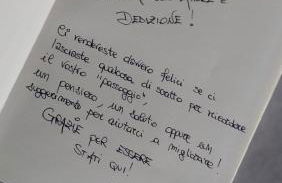 DEDIZIONE!
Ci rendereste davvero felici se ci
lasciaste qualcosa di scritto per ricordare
il vostro "passaggio",
un pensiero, un saluto oppure un
suggerimento per aiutarci a migliorare!
GRAZIE PER ESSERE
STATI QUI!